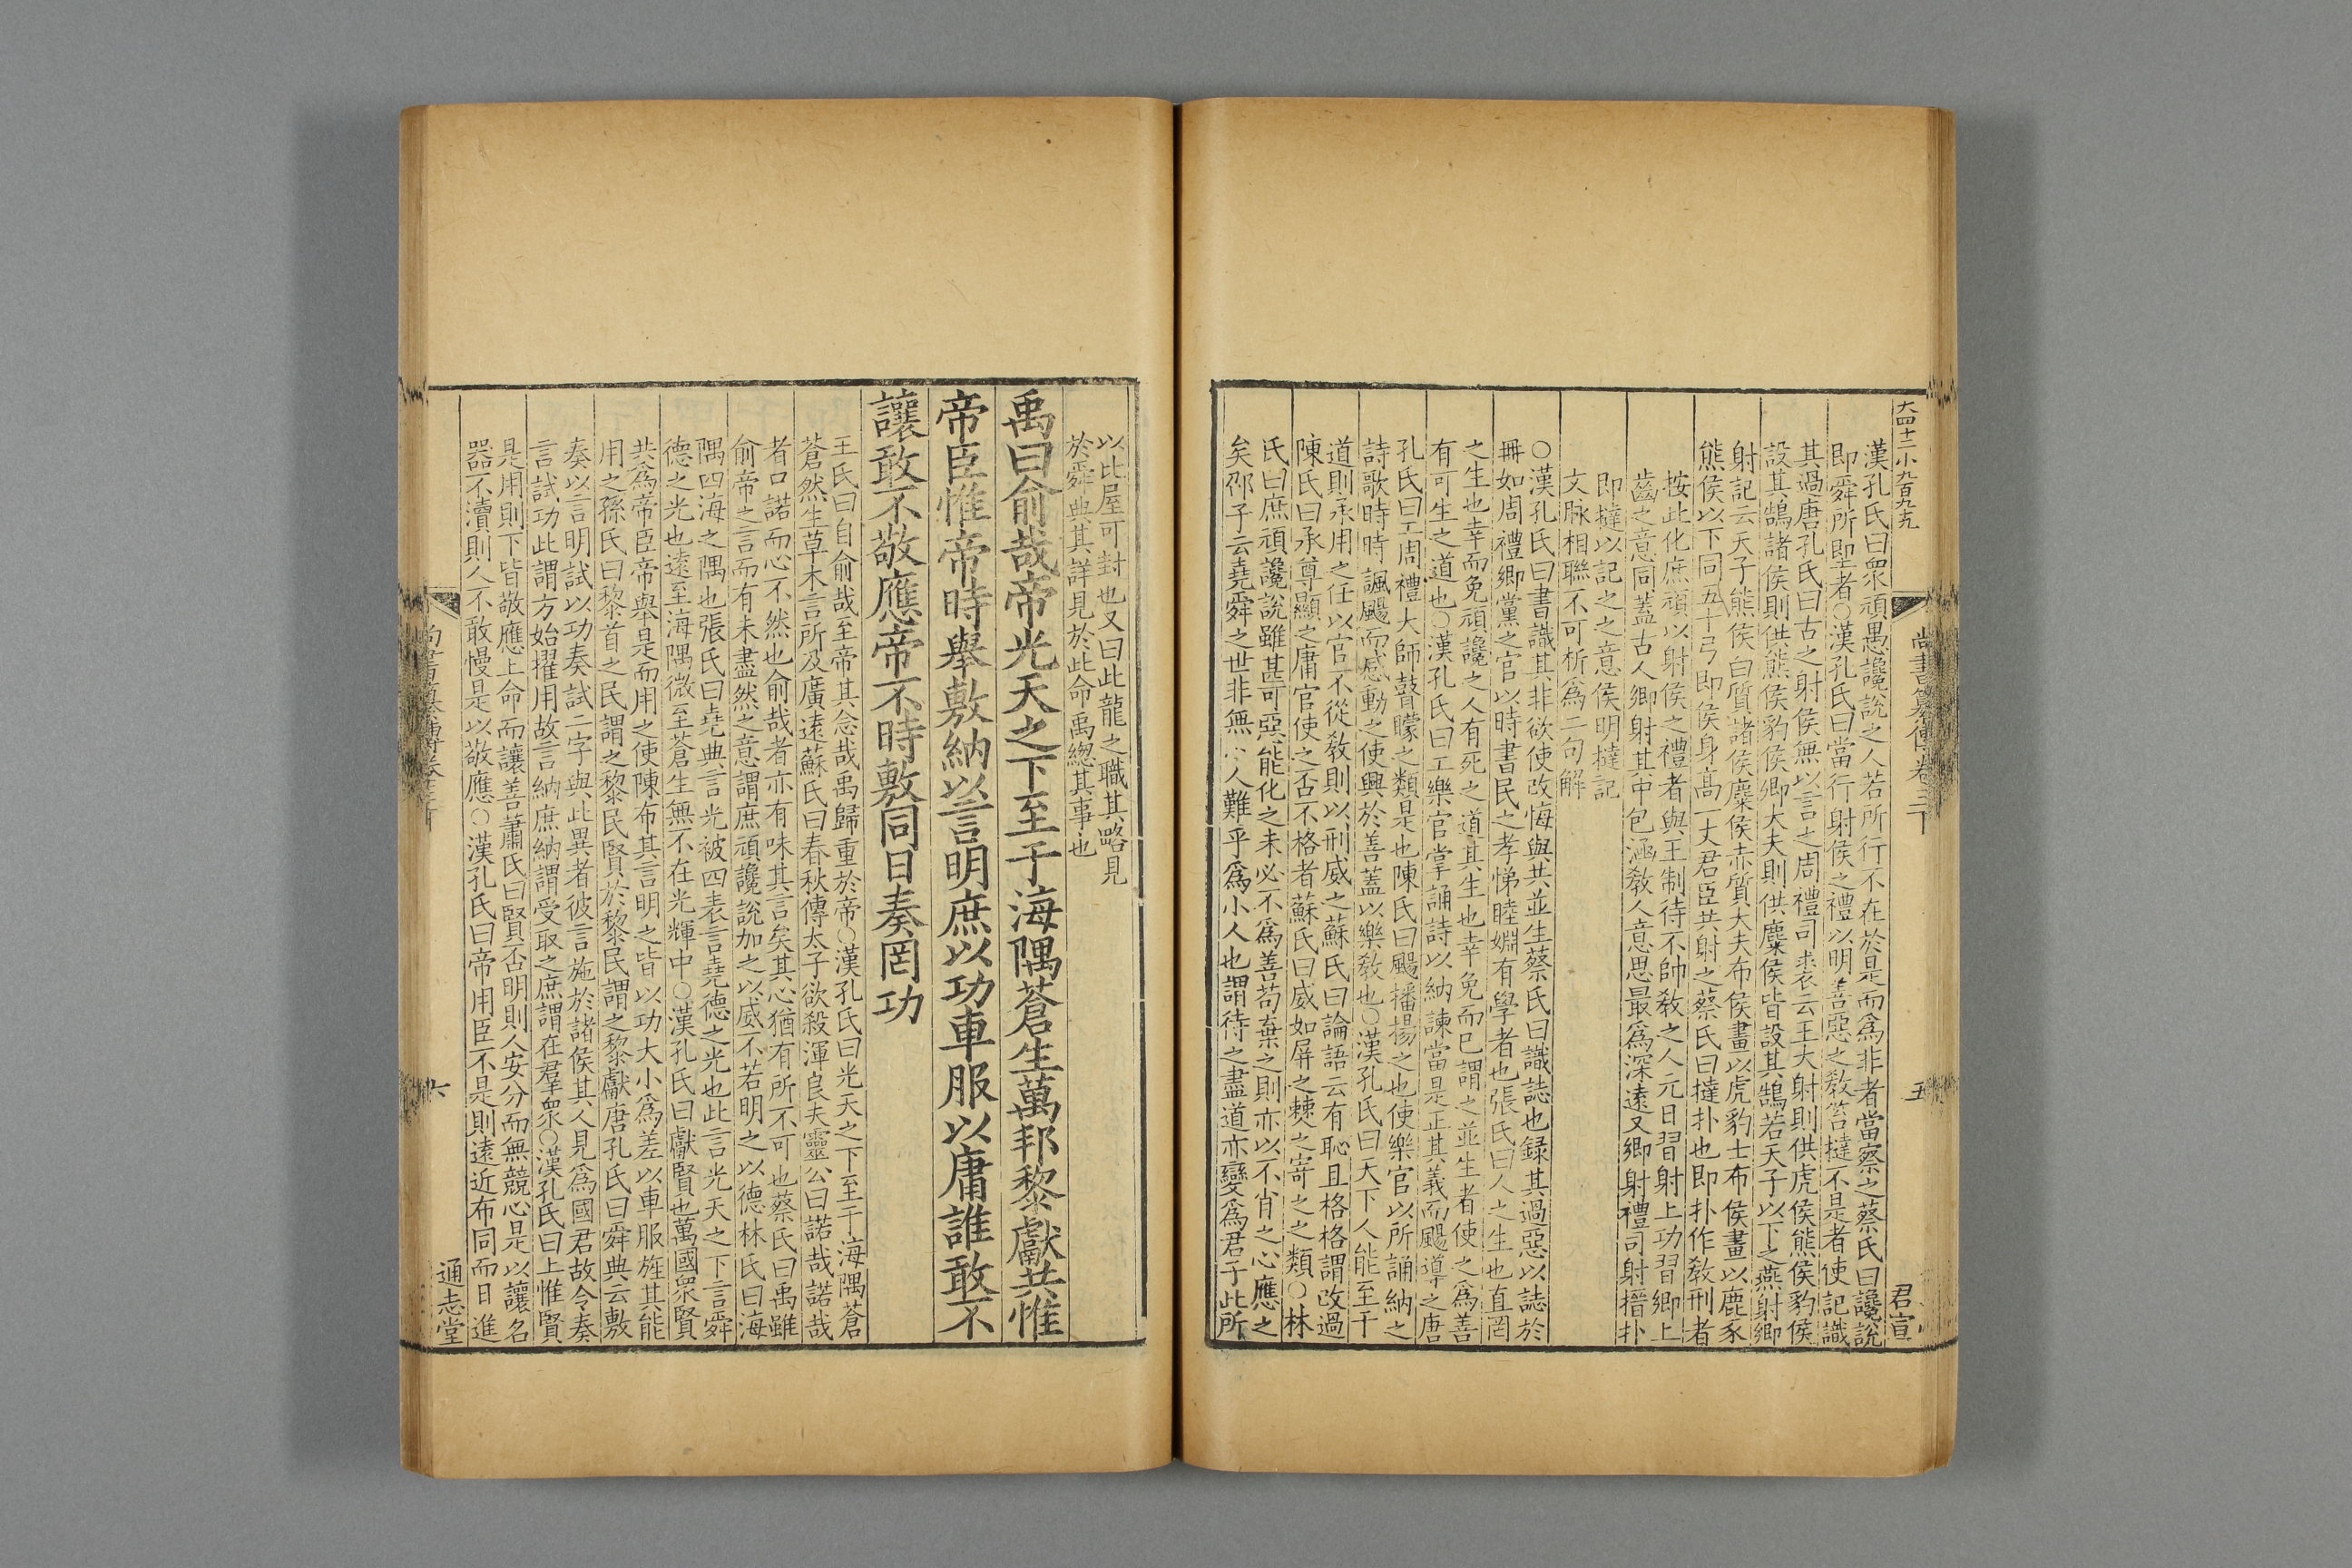 大四十二小九百九十九
漢孔氏曰衆頑愚讒說之人若所行不在於是而爲非者當察之蔡氏曰讒說
即舜所堲者○漢孔氏曰當行射侯之禮以明善惡之敎笞撻不是者使記識
其過唐孔氏曰古之射侯無以言之周禮司裘云王大射則供虎侯熊侯豹侯
設其鵠諸侯則供熊侯豹侯卿大夫則供麋侯皆設其鵠若天子以下之燕射鄉
射記云天子熊侯白質諸侯麋侯赤質大夫布侯畫以虎豹士布侯畫以鹿豕
熊侯以下同五十弓即侯身高一丈君臣共射之蔡氏曰撻扑也即扑作敎刑者
按此化庶頑以射侯之禮者與王制待不帥敎之人元日習射上功習鄉上
齒之意同蓋古人鄉射其中包涵敎人意思最爲深遠又鄉射禮司射搢扑
即撻以記之之意侯明撻記
文脉相聯不可析爲二句解
○漢孔氏曰書識其非欲使改悔與共並生蔡氏曰識誌也録其過惡以誌於
冊如周禮鄉黨之官以時書民之孝悌睦婣有學者也張氏曰人之生也直罔
之生也幸而免頑讒之人有死之道其生也幸免而已謂之並生者使之爲善
有可生之道也○漢孔氏曰工樂官掌誦詩以納諫當是正其義而颺導之唐
孔氏曰工周禮大師瞽矇之類是也陳氏曰颺播揚之也使樂官以所誦納之
詩歌時時諷颺而感動之使興於善蓋以樂敎也○漢孔氏曰天下人能至于
道則承用之任以官不從敎則以刑威之蘇氏曰論語云有恥且格格謂改過
陳氏曰承尊顯之庸官使之否不格者蘇氏曰威如屏之棘之寄之之類○林
氏曰庶頑讒說雖甚可惡能化之未必不爲善苟棄之則亦以不肖之心應之
矣邵子云堯舜之世非無人難乎爲小人也謂待之盡道亦變爲君子此所
尚書纂傳卷三下
五
君宣
以比屋可封也又曰此龍之職其略見
於舜典其詳見於此命禹緫其事也
禹曰俞哉帝光天之下至于海隅蒼生萬邦黎獻共惟
帝臣惟帝時舉敷納以言明庶以功車服以庸誰敢不
讓敢不敬應帝不時敷同日奏罔功
王氏曰自俞哉至帝其念哉禹歸重於帝○漢孔氏曰光天之下至于海隅蒼
蒼然生草木言所及廣遠蘇氏曰春秋傳太子欲殺渾良夫靈公曰諾哉諾哉
者口諾而心不然也俞哉者亦有味其言矣其心猶有所不可也蔡氏曰禹雖
俞帝之言而有未盡然之意謂庶頑讒說加之以威不若明之以德林氏曰海
隅四海之隅也張氏曰堯典言光被四表言堯德之光也此言光天之下言舜
德之光也遠至海隅微至蒼生無不在光輝中○漢孔氏曰獻賢也萬國衆賢
共爲帝臣帝舉是而用之使陳布其言明之皆以功大小爲差以車服旌其能
用之孫氏曰黎首之民謂之黎民賢於黎民謂之黎獻唐孔氏曰舜典云敷
奏以言明試以功奏試二字與此異者彼言施於諸侯其人見爲國君故令奏
言試功此謂方始擢用故言納庶納謂受取之庶謂在羣衆○漢孔氏曰上惟賢
是用則下皆敬應上命而讓善蕭氏曰賢否明則人安分而無競心是以讓名
器不瀆則人不敢慢是以敬應○漢孔氏曰帝用臣不是則遠近布同而日進
六
通志堂